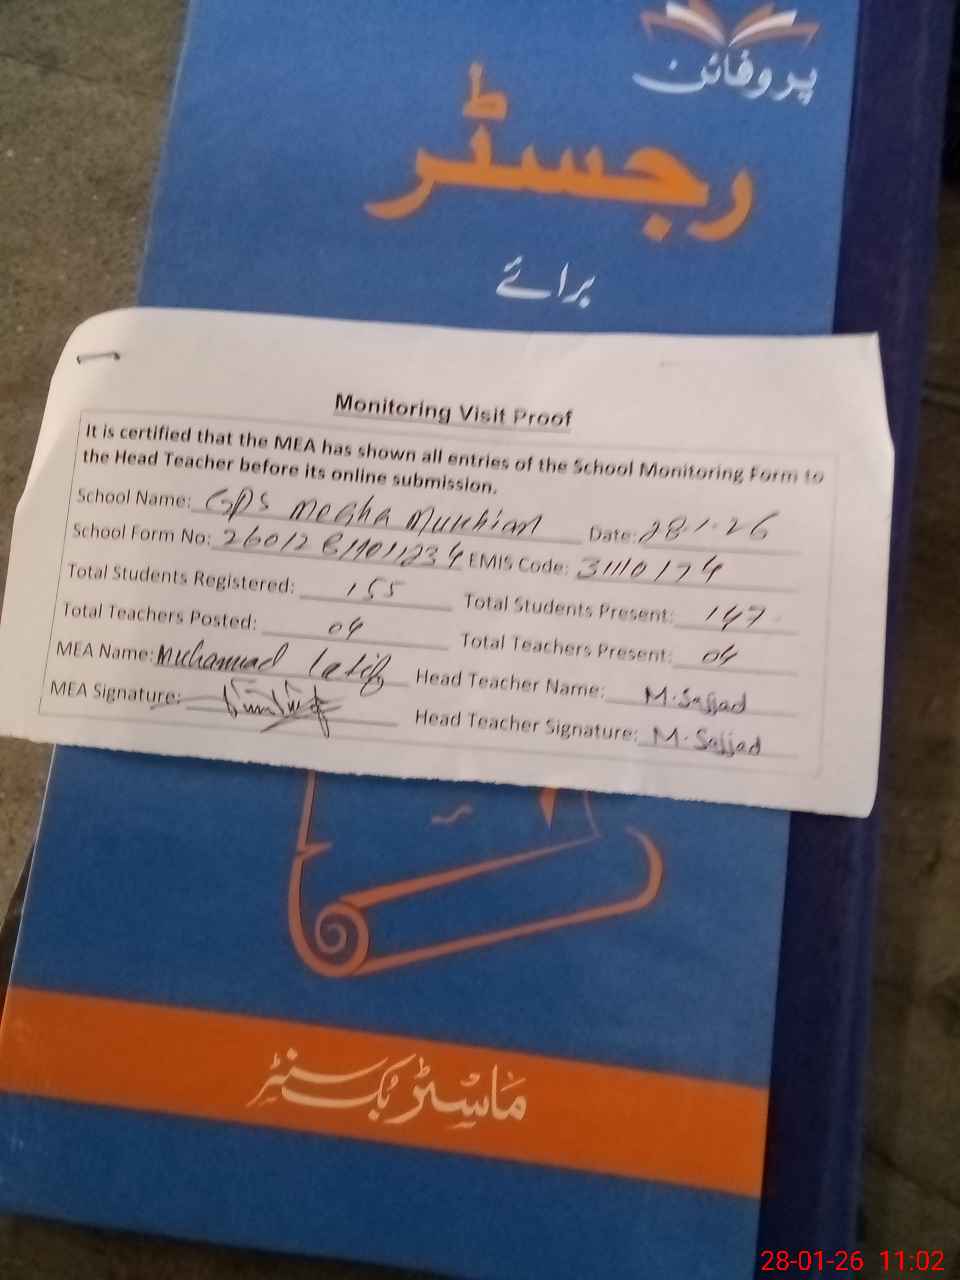 پروفائن
رجسٹر
برائے
Monitoring Visit Proof
It is certified that the MEA has shown all entries of the School Monitoring Form to
the Head Teacher before its online submission.
School Name: GPS Date: 28-1-26
School Form No: EMIS Code: 31110174
Total Students Registered: 155 Total Students Present: 147
Total Teachers Posted: 04 Total Teachers Present: 04
MEA Name: Muhammad Latif Head Teacher Name: M. Sajjad
MEA Signature: Head Teacher Signature: M. Sajjad
ماسٹر بک سنٹر
28-01-26 11:02